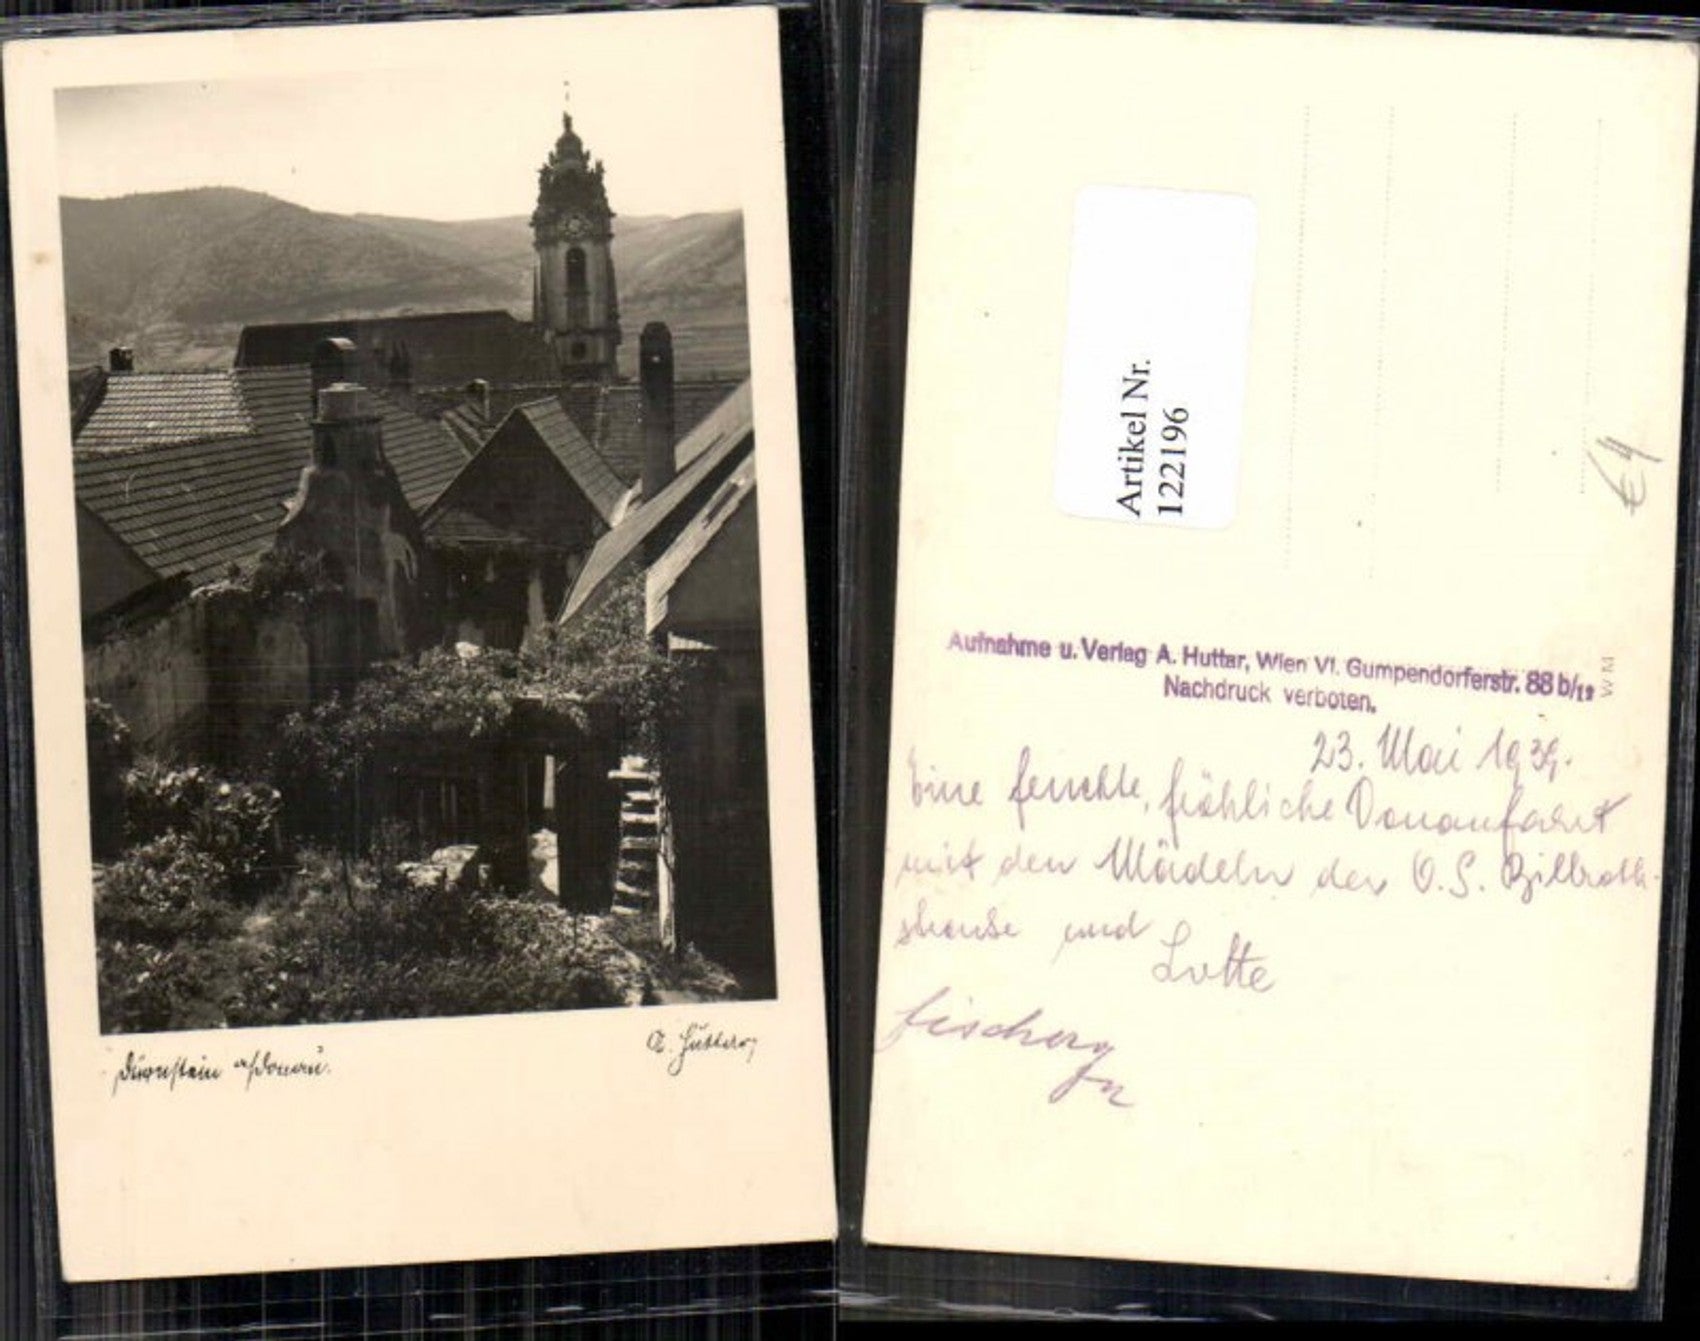 Dürnstein a/Donau.
A. Huttar
Artikel Nr.
122196
€ 4
Aufnahme u. Verlag A. Huttar, Wien VI. Gumpendorferstr. 88 b/12
Nachdruck verboten.
W M
23. Mai 1939.
Eine feuchte, fröhliche Donaufahrt
mit den Mädeln der O.S. Billroth-
strasse und
Lotte